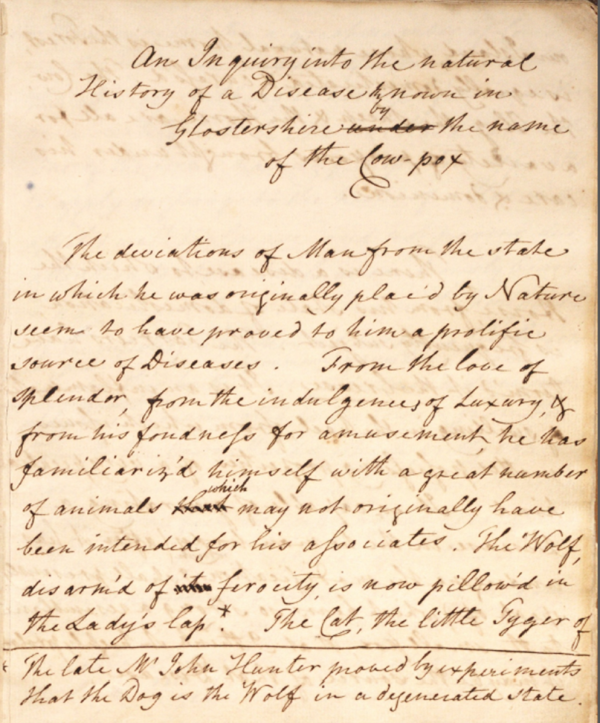 An Inquiry into the natural
History of a Disease known in
by
Glostershire under the name
of the Cow-pox
The deviations of Man from the state
in which he was originally plac'd by Nature
seem to have proved to him a prolific
source of Diseases. From the love of
splendor, from the indulgences of Luxury, &
from his fondness for amusement, he has
familiariz'd himself with a great number
which
of animals may not originally have
been intended for his associates. The Wolf,
disarm'd of its ferocity is now pillow'd in
the Lady's lap*. The Cat, the little Tyger of
The late Mr John Hunter proved by experiments
that the Dog is the Wolf in a degenerated state.